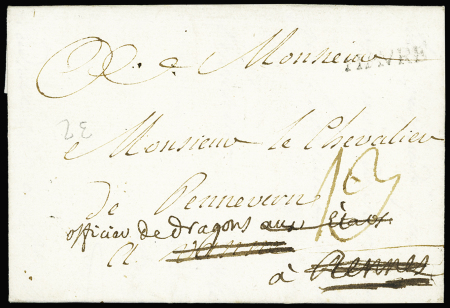 A Monsieur
HAVRE
32
Monsieur le Chevalier
De Pennevern 13
officier de dragons aux états
a
à Rennes